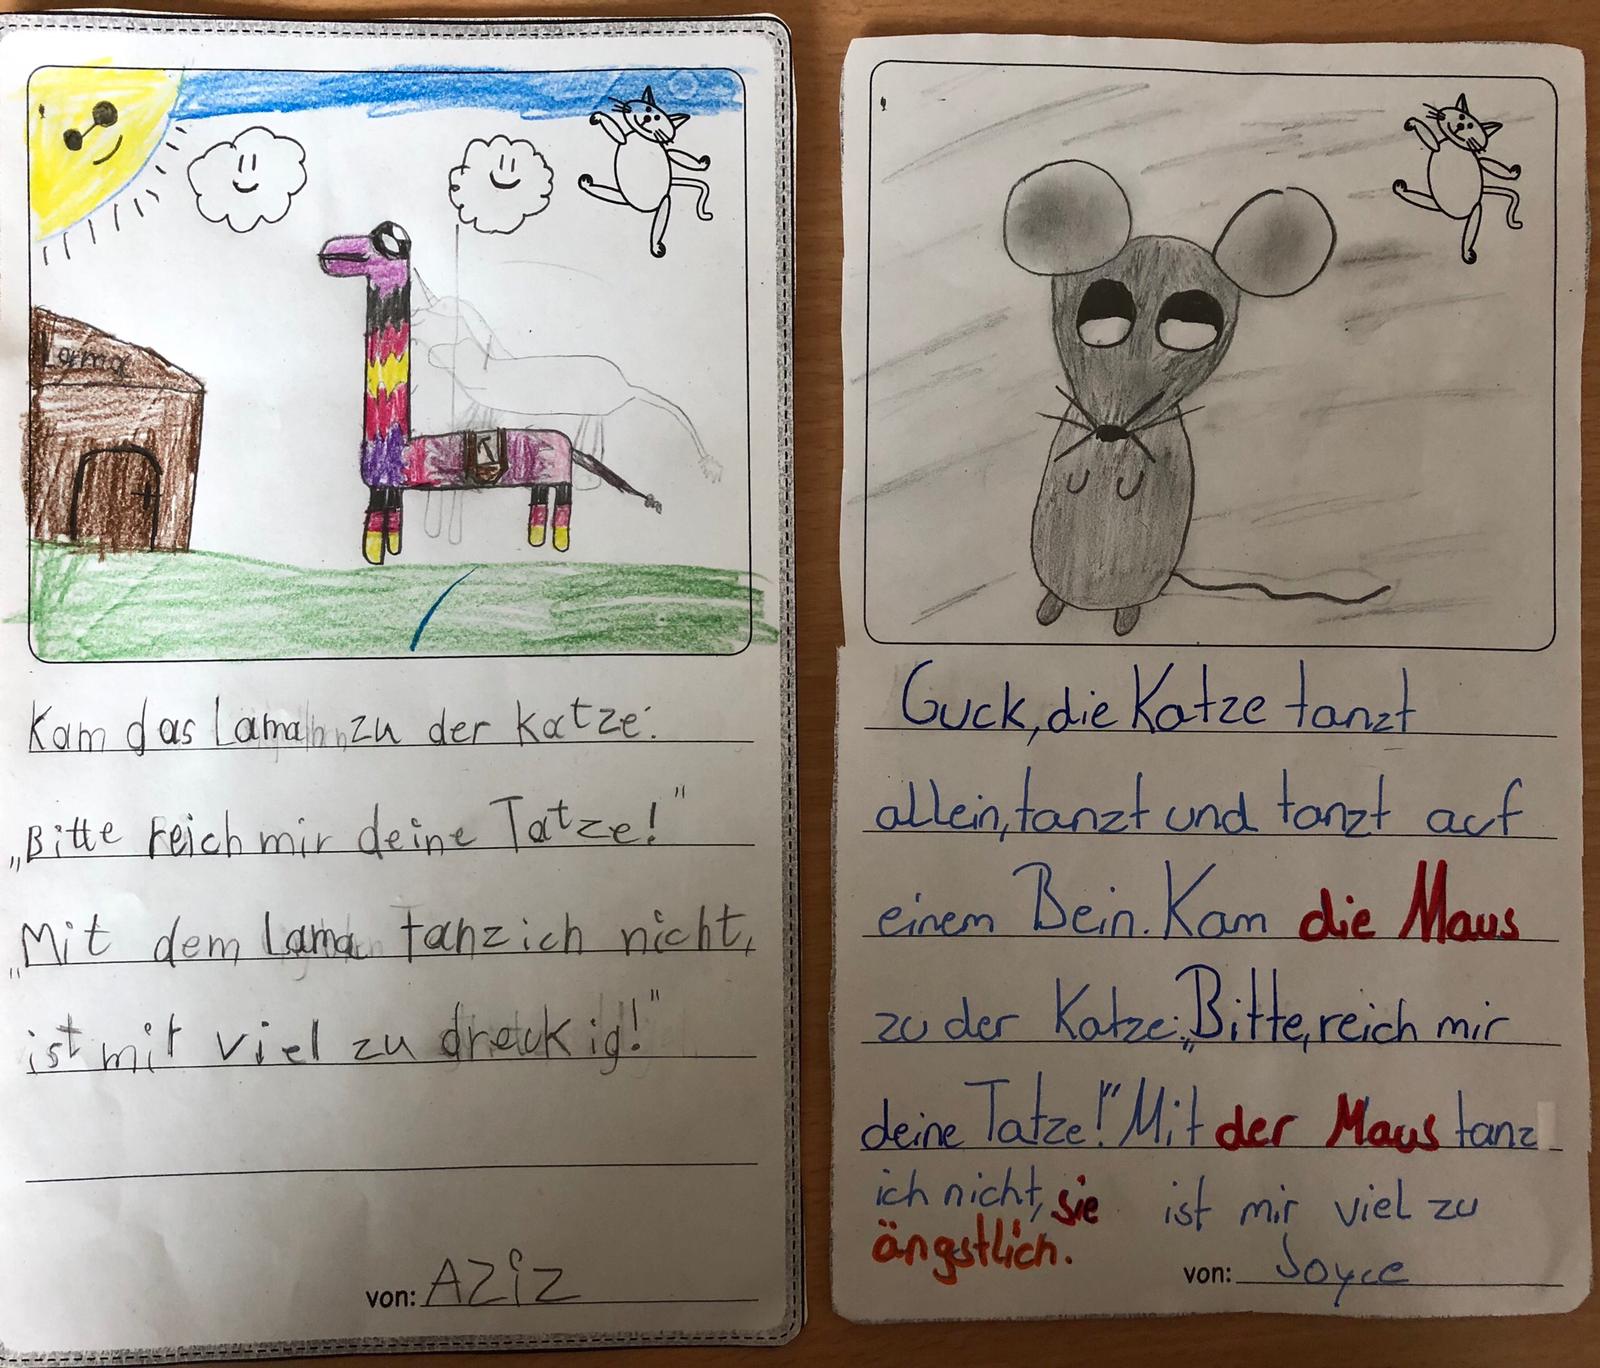 Lama
Kam das Lama zu der Katze:
„Bitte reich mir deine Tatze!"
„Mit dem Lama tanz ich nicht,
ist mir viel zu dreckig!"
von: AZiZ
Guck, die Katze tanzt
allein, tanzt und tanzt auf
einem Bein. Kam die Maus
zu der Katze: „Bitte, reich mir
deine Tatze!" Mit der Maus tanz
ich nicht, sie ist mir viel zu
ängstlich.
von: Joyce